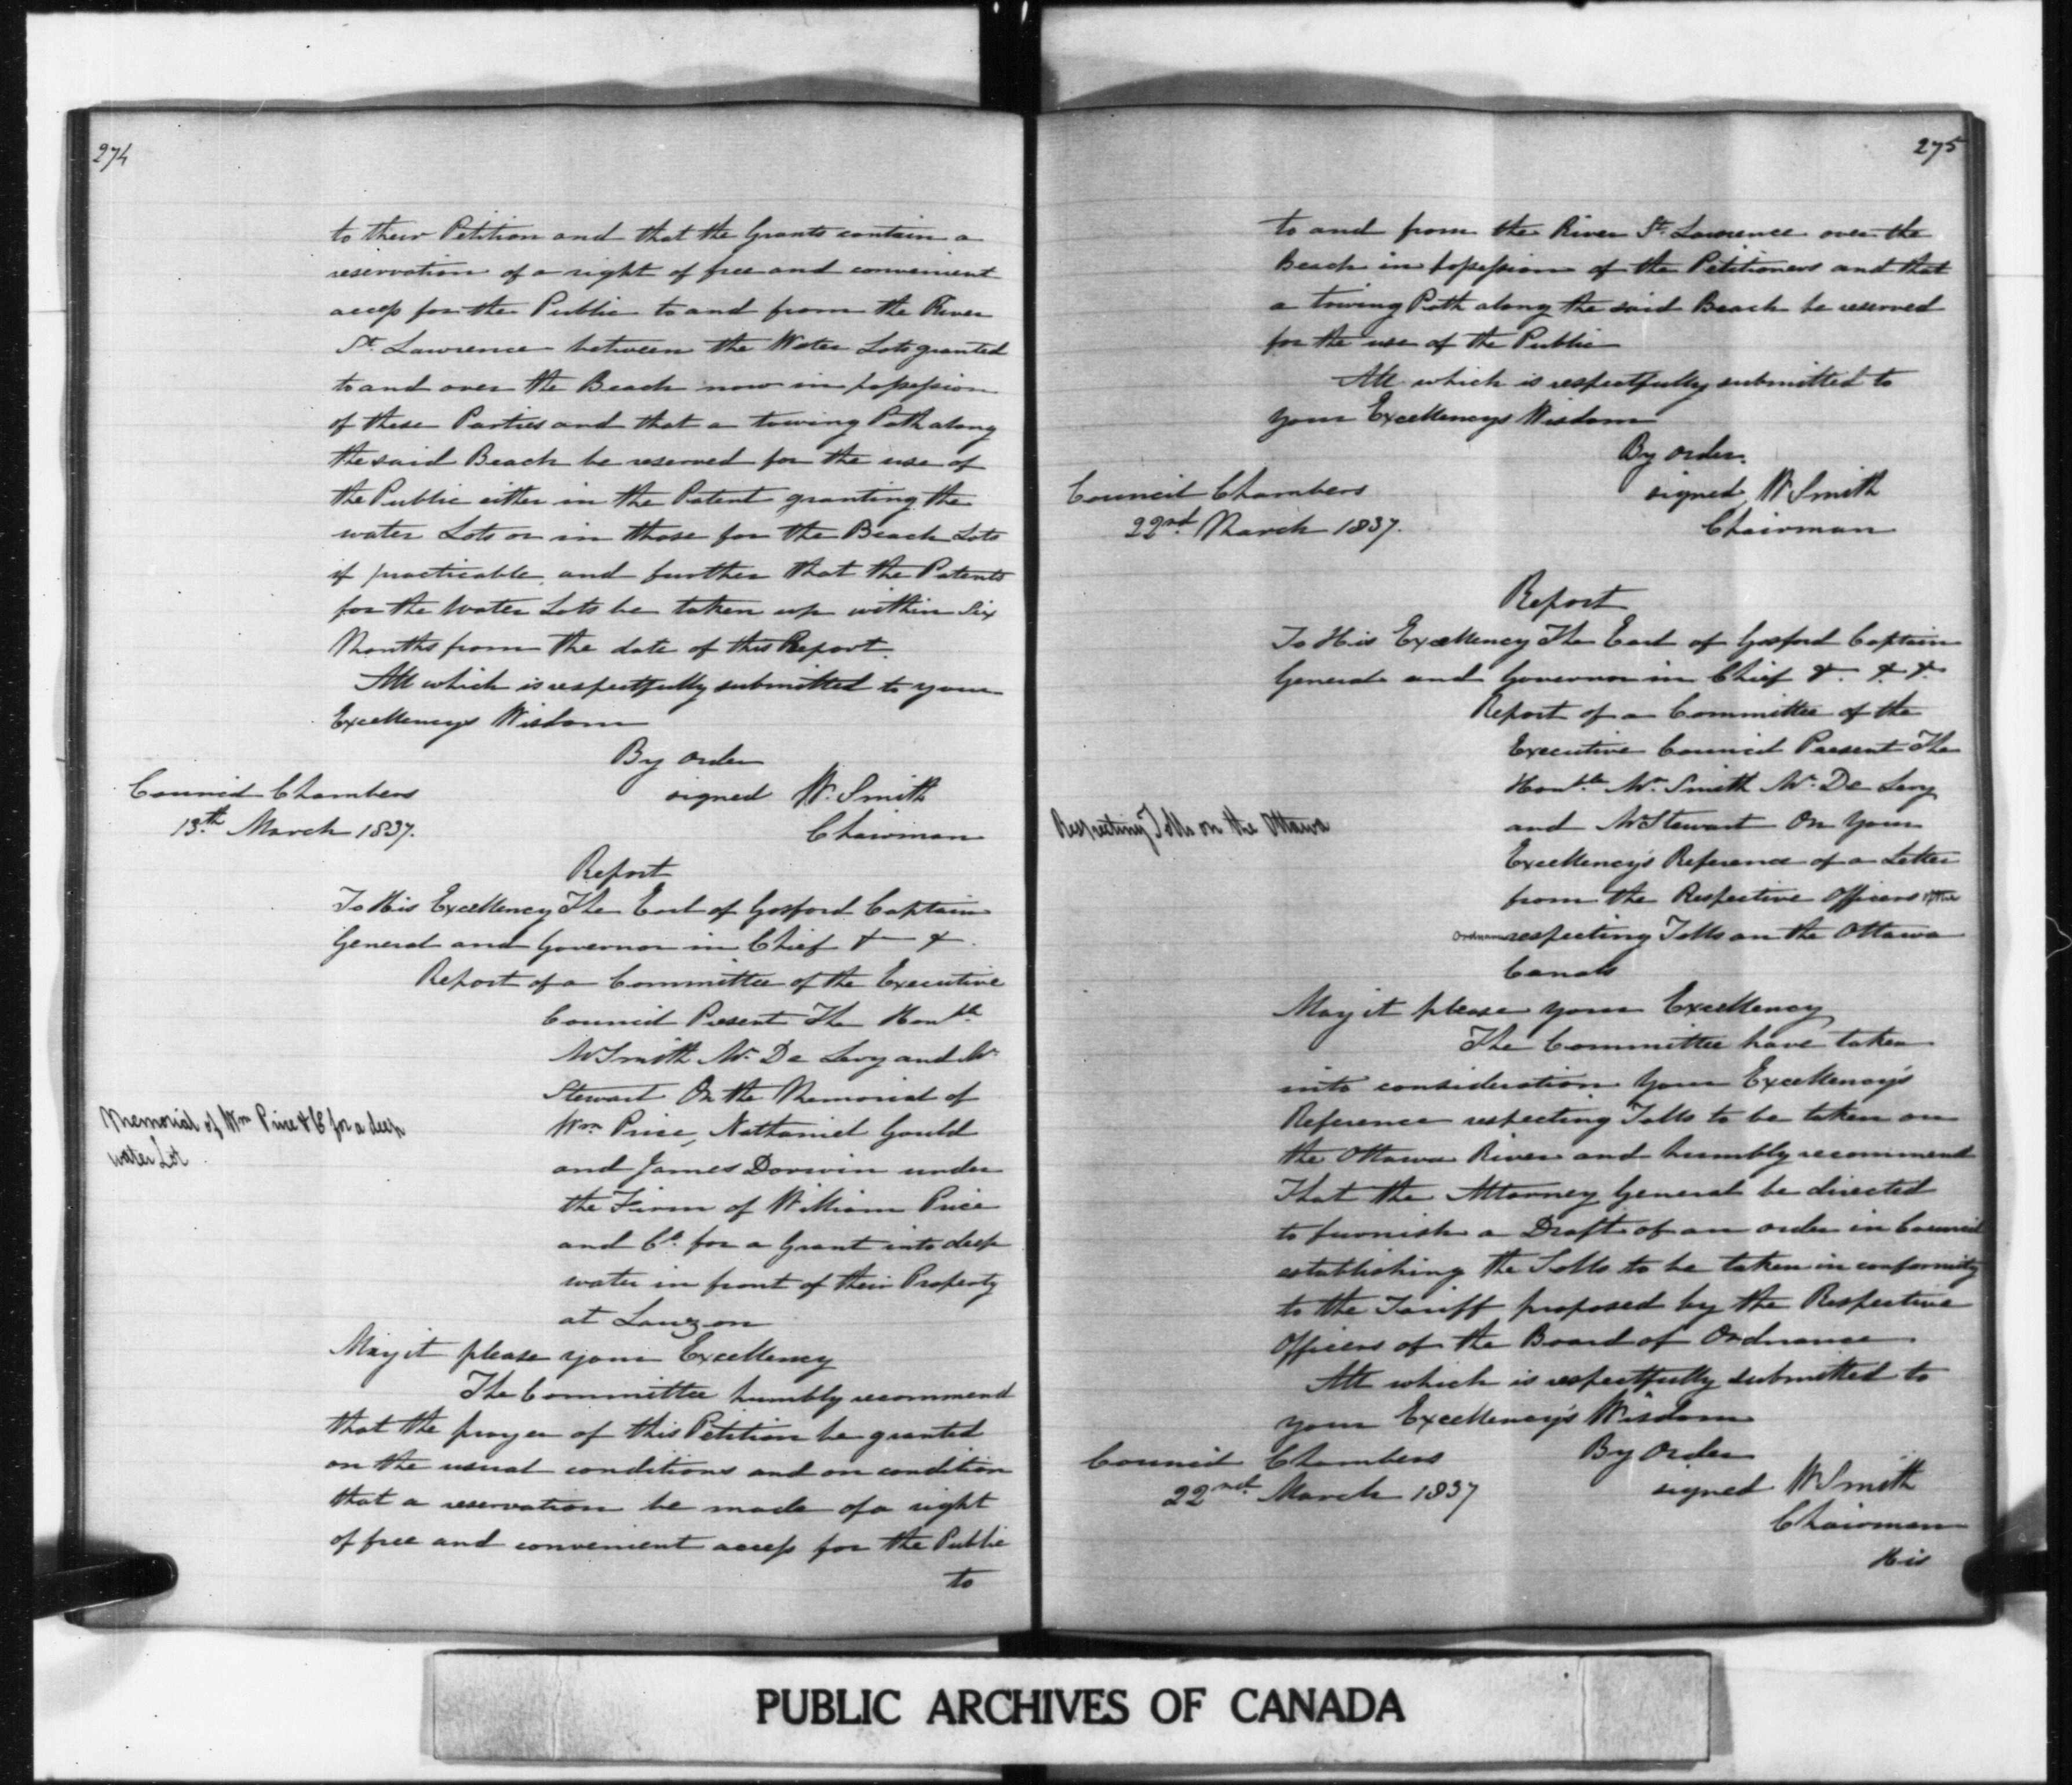 274
to their Petition and that the Grants contain a
reservation of a right of free and convenient
access for the Public to and from the River
St. Lawrence between the Water Lots granted
to and over the Beach now in possession
of these Parties and that a towing Path along
the said Beach be reserved for the use of
the Public either in the Patent granting the
water Lots or in those for the Beach Lots
if practicable and further that the Patents
for the Water Lots be taken up within Six
Months from the date of this Report.
All which is respectfully submitted to your
Excellencys Wisdom
By order
Council Chambers
signed W. Smith
13th March 1837.
Chairman
Report
To His Excellency The Earl of Gosford Captain
General and Governor in Chief & &.
Report of a Committee of the Executive
Council Present The Honble
Mr Smith Mr. De Lery and Mr
Stewart On the Memorial of
Wm Price, Nathaniel Gould
and James Dowin under
the Firm of William Price
and Co. for a Grant into deep
water in front of their Property
at Lauzon
Memorial of Wm Price & C for a deep
water Lot
May it please your Excellency
The Committee humbly recommend
that the prayer of this Petition be granted
on the usual conditions and on condition
that a reservation be made of a right
of free and convenient access for the Public
to
275
to and from the River St. Lawrence over the
Beach in possession of the Petitioners and that
a towing Path along the said Beach be reserved
for the use of the Public
All which is respectfully submitted to
your Excellencys Wisdom
By order.
Council Chambers
signed, W Smith
22nd March 1837.
Chairman
Report
To His Excellency The Earl of Gosford Captain
General and Governor in Chief &. &. &.
Report of a Committee of the
Executive Council Present The
Honble Mr. Smith Mr. De Lery
and Mr Stewart On Your
Excellency's Reference of a Letter
from the Respective Officers of the
Ordnance respecting Tolls on the Ottawa
Canals
Respecting Tolls on the Ottawa
May it please your Excellency
The Committee have taken
into consideration Your Excellency's
Reference respecting Tolls to be taken on
the Ottawa River and humbly recommend
That the Attorney General be directed
to furnish a Draft of an order in Council
establishing the Tolls to be taken in conformity
to the Tariff proposed by the Respective
Officers of the Board of Ordnance
All which is respectfully submitted to
your Excellency's Wisdom
By Order
Council Chambers
signed W Smith
22nd March 1837
Chairman
His
PUBLIC ARCHIVES OF CANADA